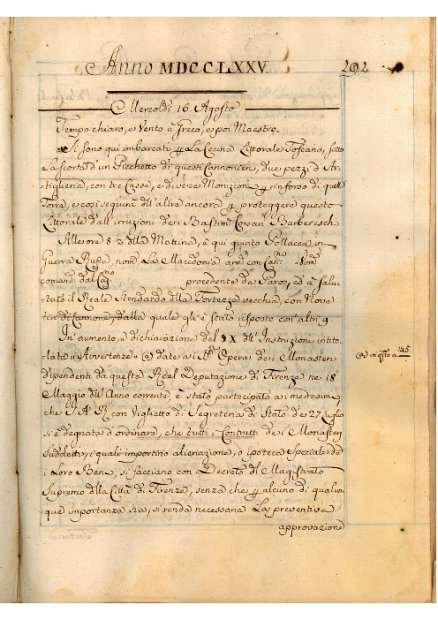 Anno MDCCLXXV. 292
Mercoldì 16 Agosto
Tempo chiaro, e Vento à Greco, e poi Maestro.
Si sono qui imbarcati p La Cecina Littorale Toscano, sotto
La scorta d'un Picchetto di questi Cannonieri, due pezzi d'Ar-
tiglieria, con tre Casse, e diverse Monizioni p rinforzo di quella
Torre, e così seguirà all'altre ancora p proteggere questo
Littorale dall'irruzioni dei Bastim Corsari Barbereschi
All'ora 8 2 della Matina, è qui giunto Pollacca in
Guerra Russa, nom La Macedonia arm con Can
comand dal Cap procedente da Paros, ed à salu-
tato il Reale Stendardo della Fortezza vecchia, con Nove
tiri di Cannone, dalla quale gl'è stato risposto con altri 9
In aumento, e dichiarazione del § X dell' Instruzione intito-
lata Avvertenze @ date ai SS Operai dei Monasteri @ a
dipendenti da questa Real Deputazione di Firenze ne 18 145
Maggio dell'Anno corrente, è stato partecipato ai medesimi
che S A R con Viglietto di Segreteria di Stato de 27 Luglio
si è degnato d'ordinare, che tutti i Contratti dei Monasteri
suddetti, i quali importino alienazione, o ipoteca speciale de
i Loro Beni, si facciano con Decreto del Magistrato
Supremo della Città di Firenze, senza che p alcuno di qualun-
que importanza sia, si renda necessaria La preventiva
approvazione